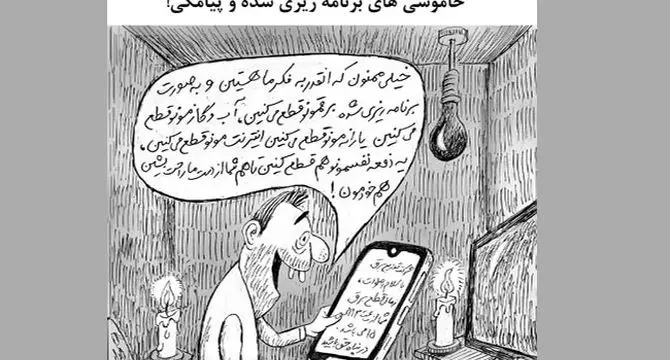 خاموشی های برنامه ریزی شده و پیامکی!
خیلی ممنون که انقدر به فکر ما هستین و به صورت
برنامه ریزی شده برقمونو قطع می‌کنین، آب و گازمونو قطع
می‌کنین یارانه مونو قطع می‌کنین اینترنت مونو قطع می‌کنین،
یه دفعه نفسمونو هم قطع کنین تا هم شما از دست ما راحت بشین
هم خودمون!
توزیع برق
با سلام و صلوات،
قطع برق
شما از ساعت
می باشد.